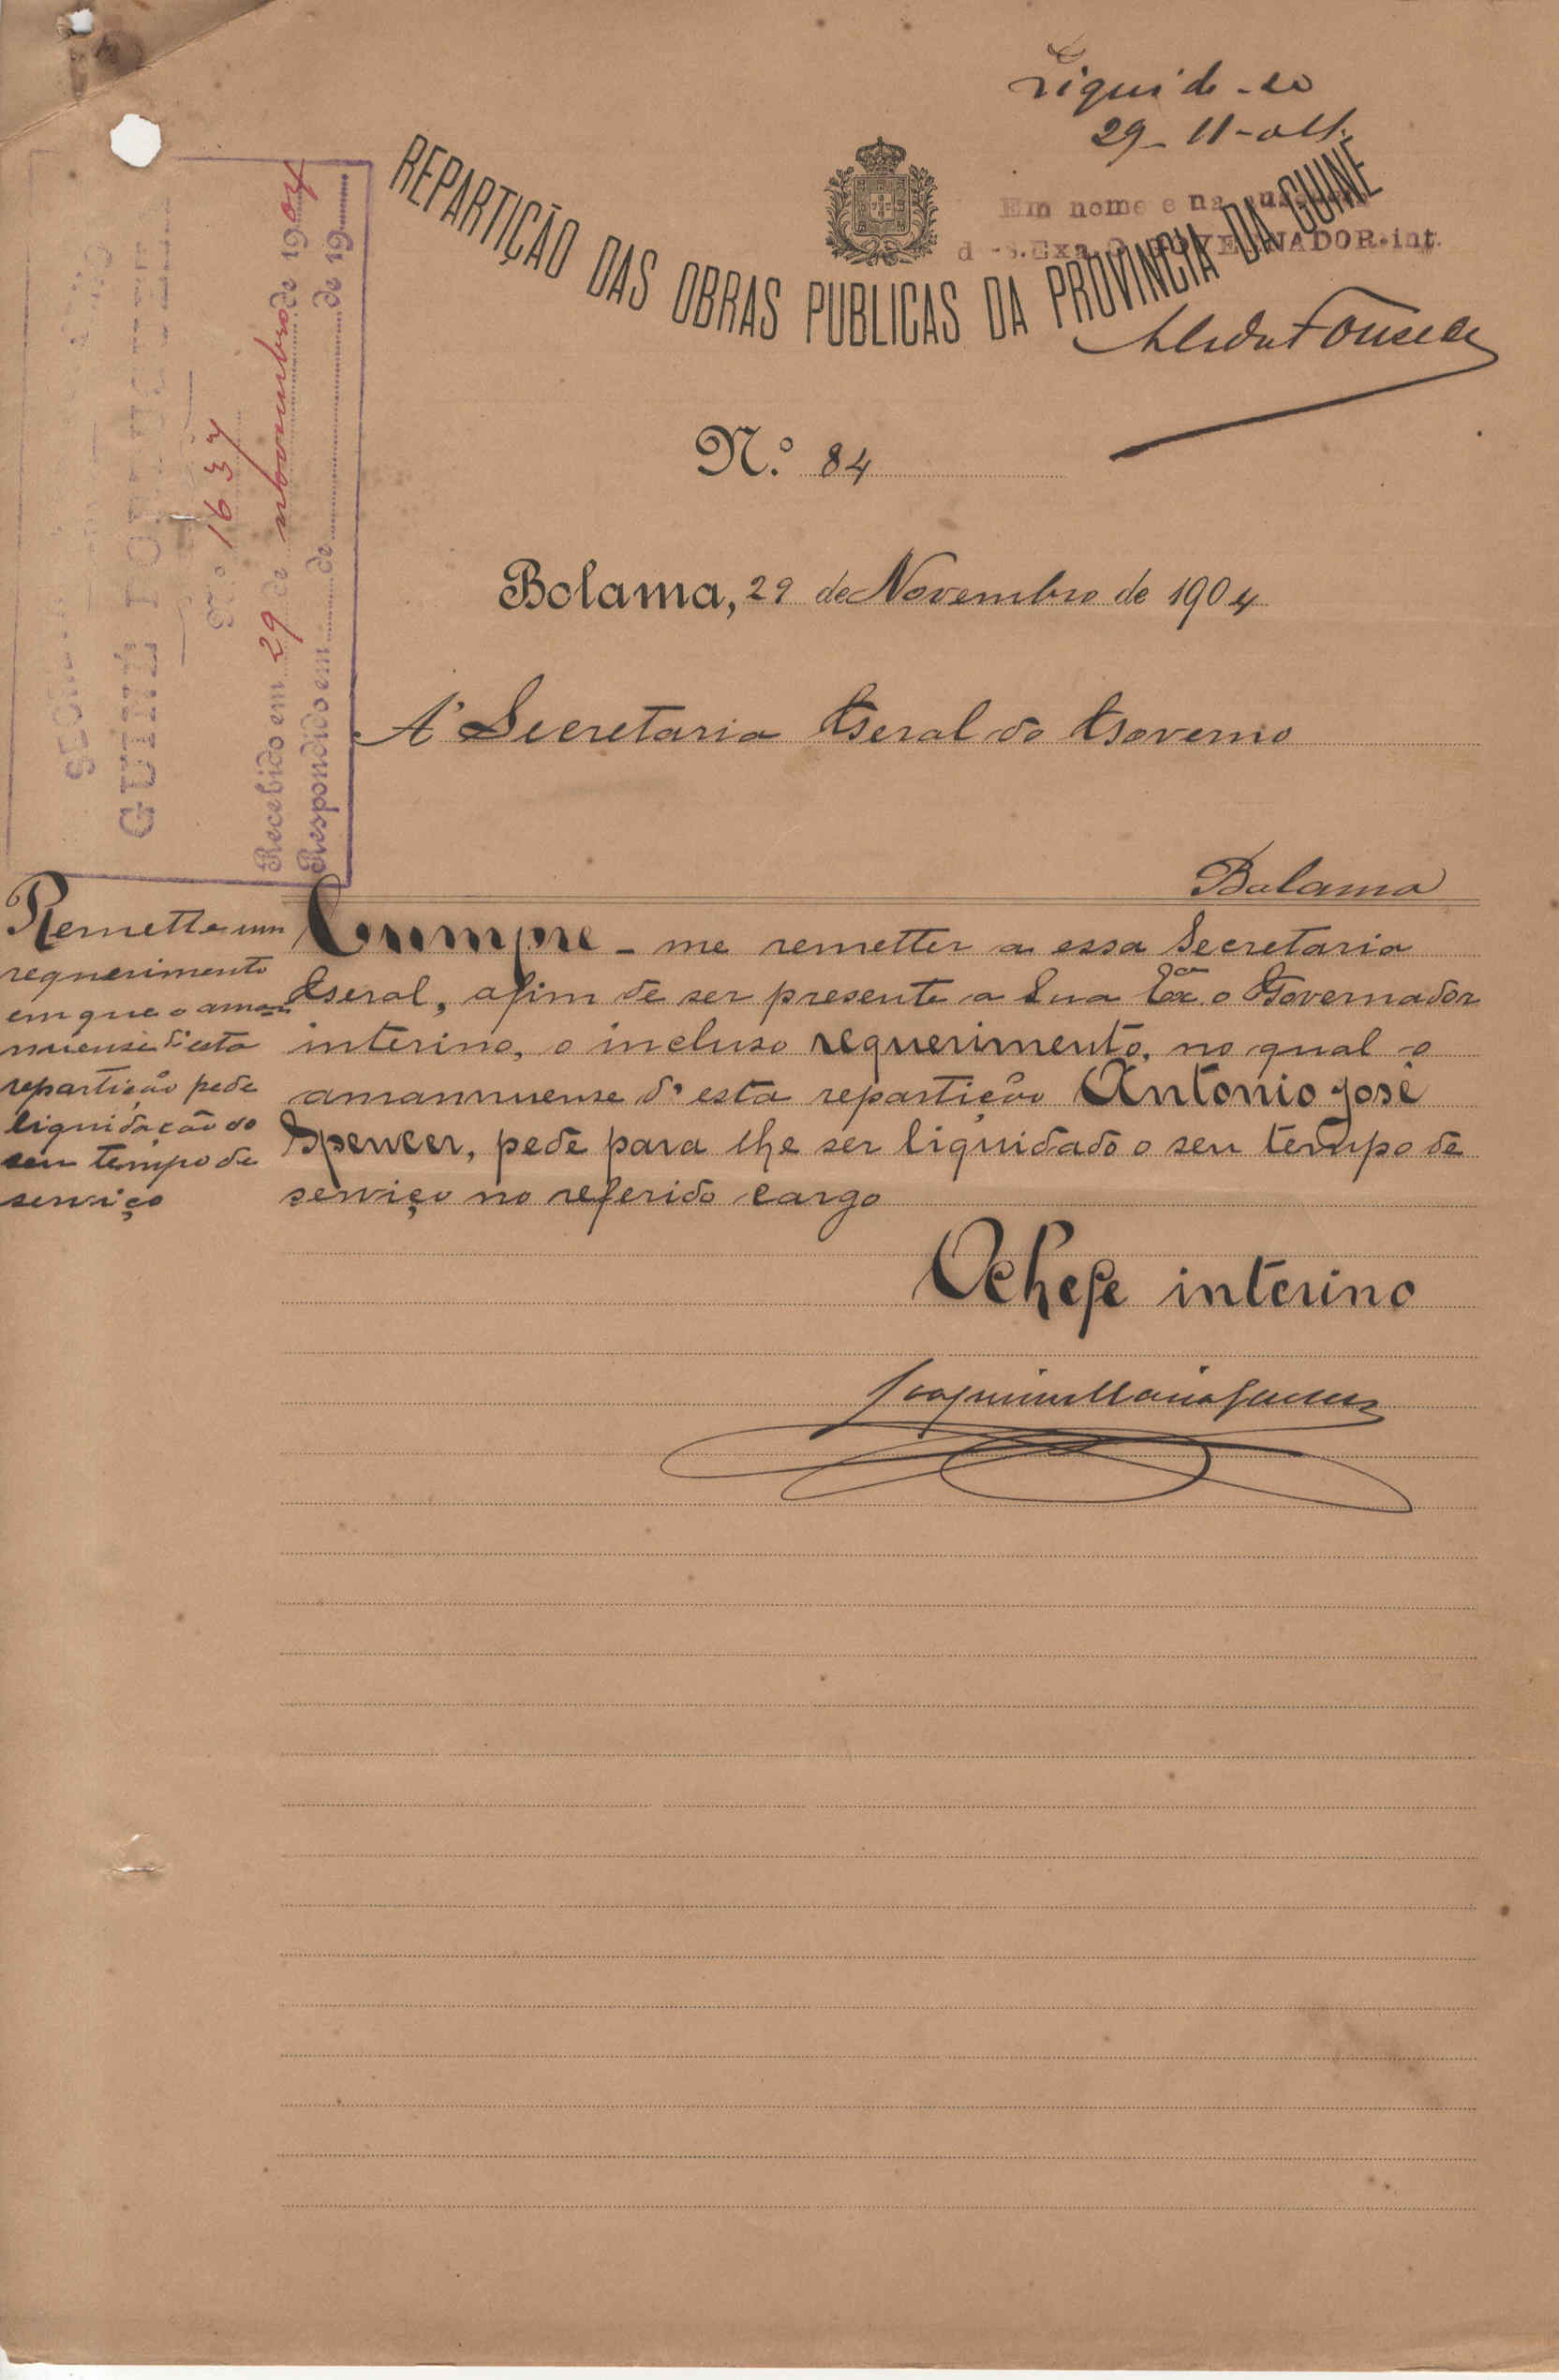 Liquide-se
29-11-904
Em nome e na ausencia
de S. Exa. O GOVERNADOR int.
REPARTIÇÃO DAS OBRAS PUBLICAS DA PROVINCIA DA GUINÉ
N.º 84
Bolama, 29 de Novembro de 1904
GUINÉ PORTUGUEZA
N.º 1637
Recebido em 29 de novembro de 1904
Respondido em de de 19
A' Secretaria Geral do Governo
Bolama
Remette um
requerimento
em que o ama-
nuense d'esta
repartição pede
liquidação do
seu tempo de
serviço
Cumpre-me remetter a essa Secretaria
Geral, afim de ser presente a Sua Exca o Governador
interino, o incluso requerimento, no qual o
amannuense d'esta repartição Antonio José
Spencer, pede para lhe ser liquidado o seu tempo de
serviço no referido cargo
O chefe interino